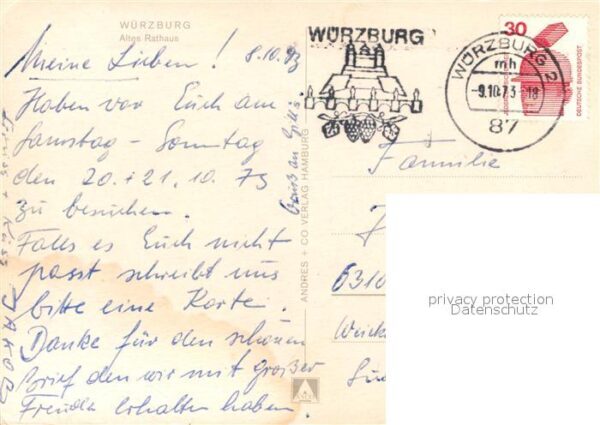 WÜRZBURG
Altes Rathaus
Meine Lieben! 8.10.73
Haben vor Euch am
Samstag - Sonntag
den 20.+21.10.73
zu besuchen.
Falls es Euch nicht
passt schreibt uns
bitte eine Karte.
Danke für den schönen
Brief den wir mit großer
Freude erhalten haben.
Gruß + Kuss
JAKOB
Gruß an
ANDRES + CO VERLAG HAMBURG
WÜRZBURG
WÜRZBURG 2
mh
-9.10.73-18
87
30
DEUTSCHE BUNDESPOST
Familie
6310
privacy protection
Datenschutz